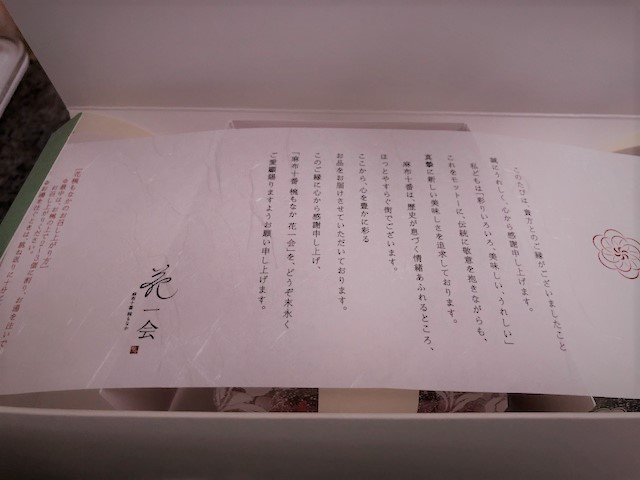 このたびは、貴方とのご縁がございましたこと
誠にうれしく、心から感謝申し上げます。
私どもは「彩りいろいろ、美味しい、うれしい」
これをモットーに、伝統に敬意を抱きながらも、
真摯に新しい美味しさを追求しております。
麻布十番は、歴史が息づく情緒あふれるところ、
ほっとやすらぐ街でございます。
ここから、心を豊かに彩る
お品をお届けさせていただいております。
このご縁に心から感謝申し上げ、
「麻布十番 椀もなか 花一会」を、どうぞ末永く
ご愛顧賜りますようお願い申し上げます。
花一会
麻布十番 椀もなか